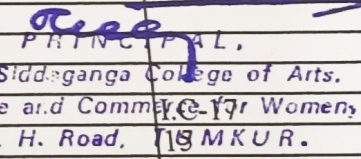 PRINCIPAL,
Siddaganga College of Arts.
e and Commerce for Womens
I.C-17
. H. Road, TUMKUR.
15